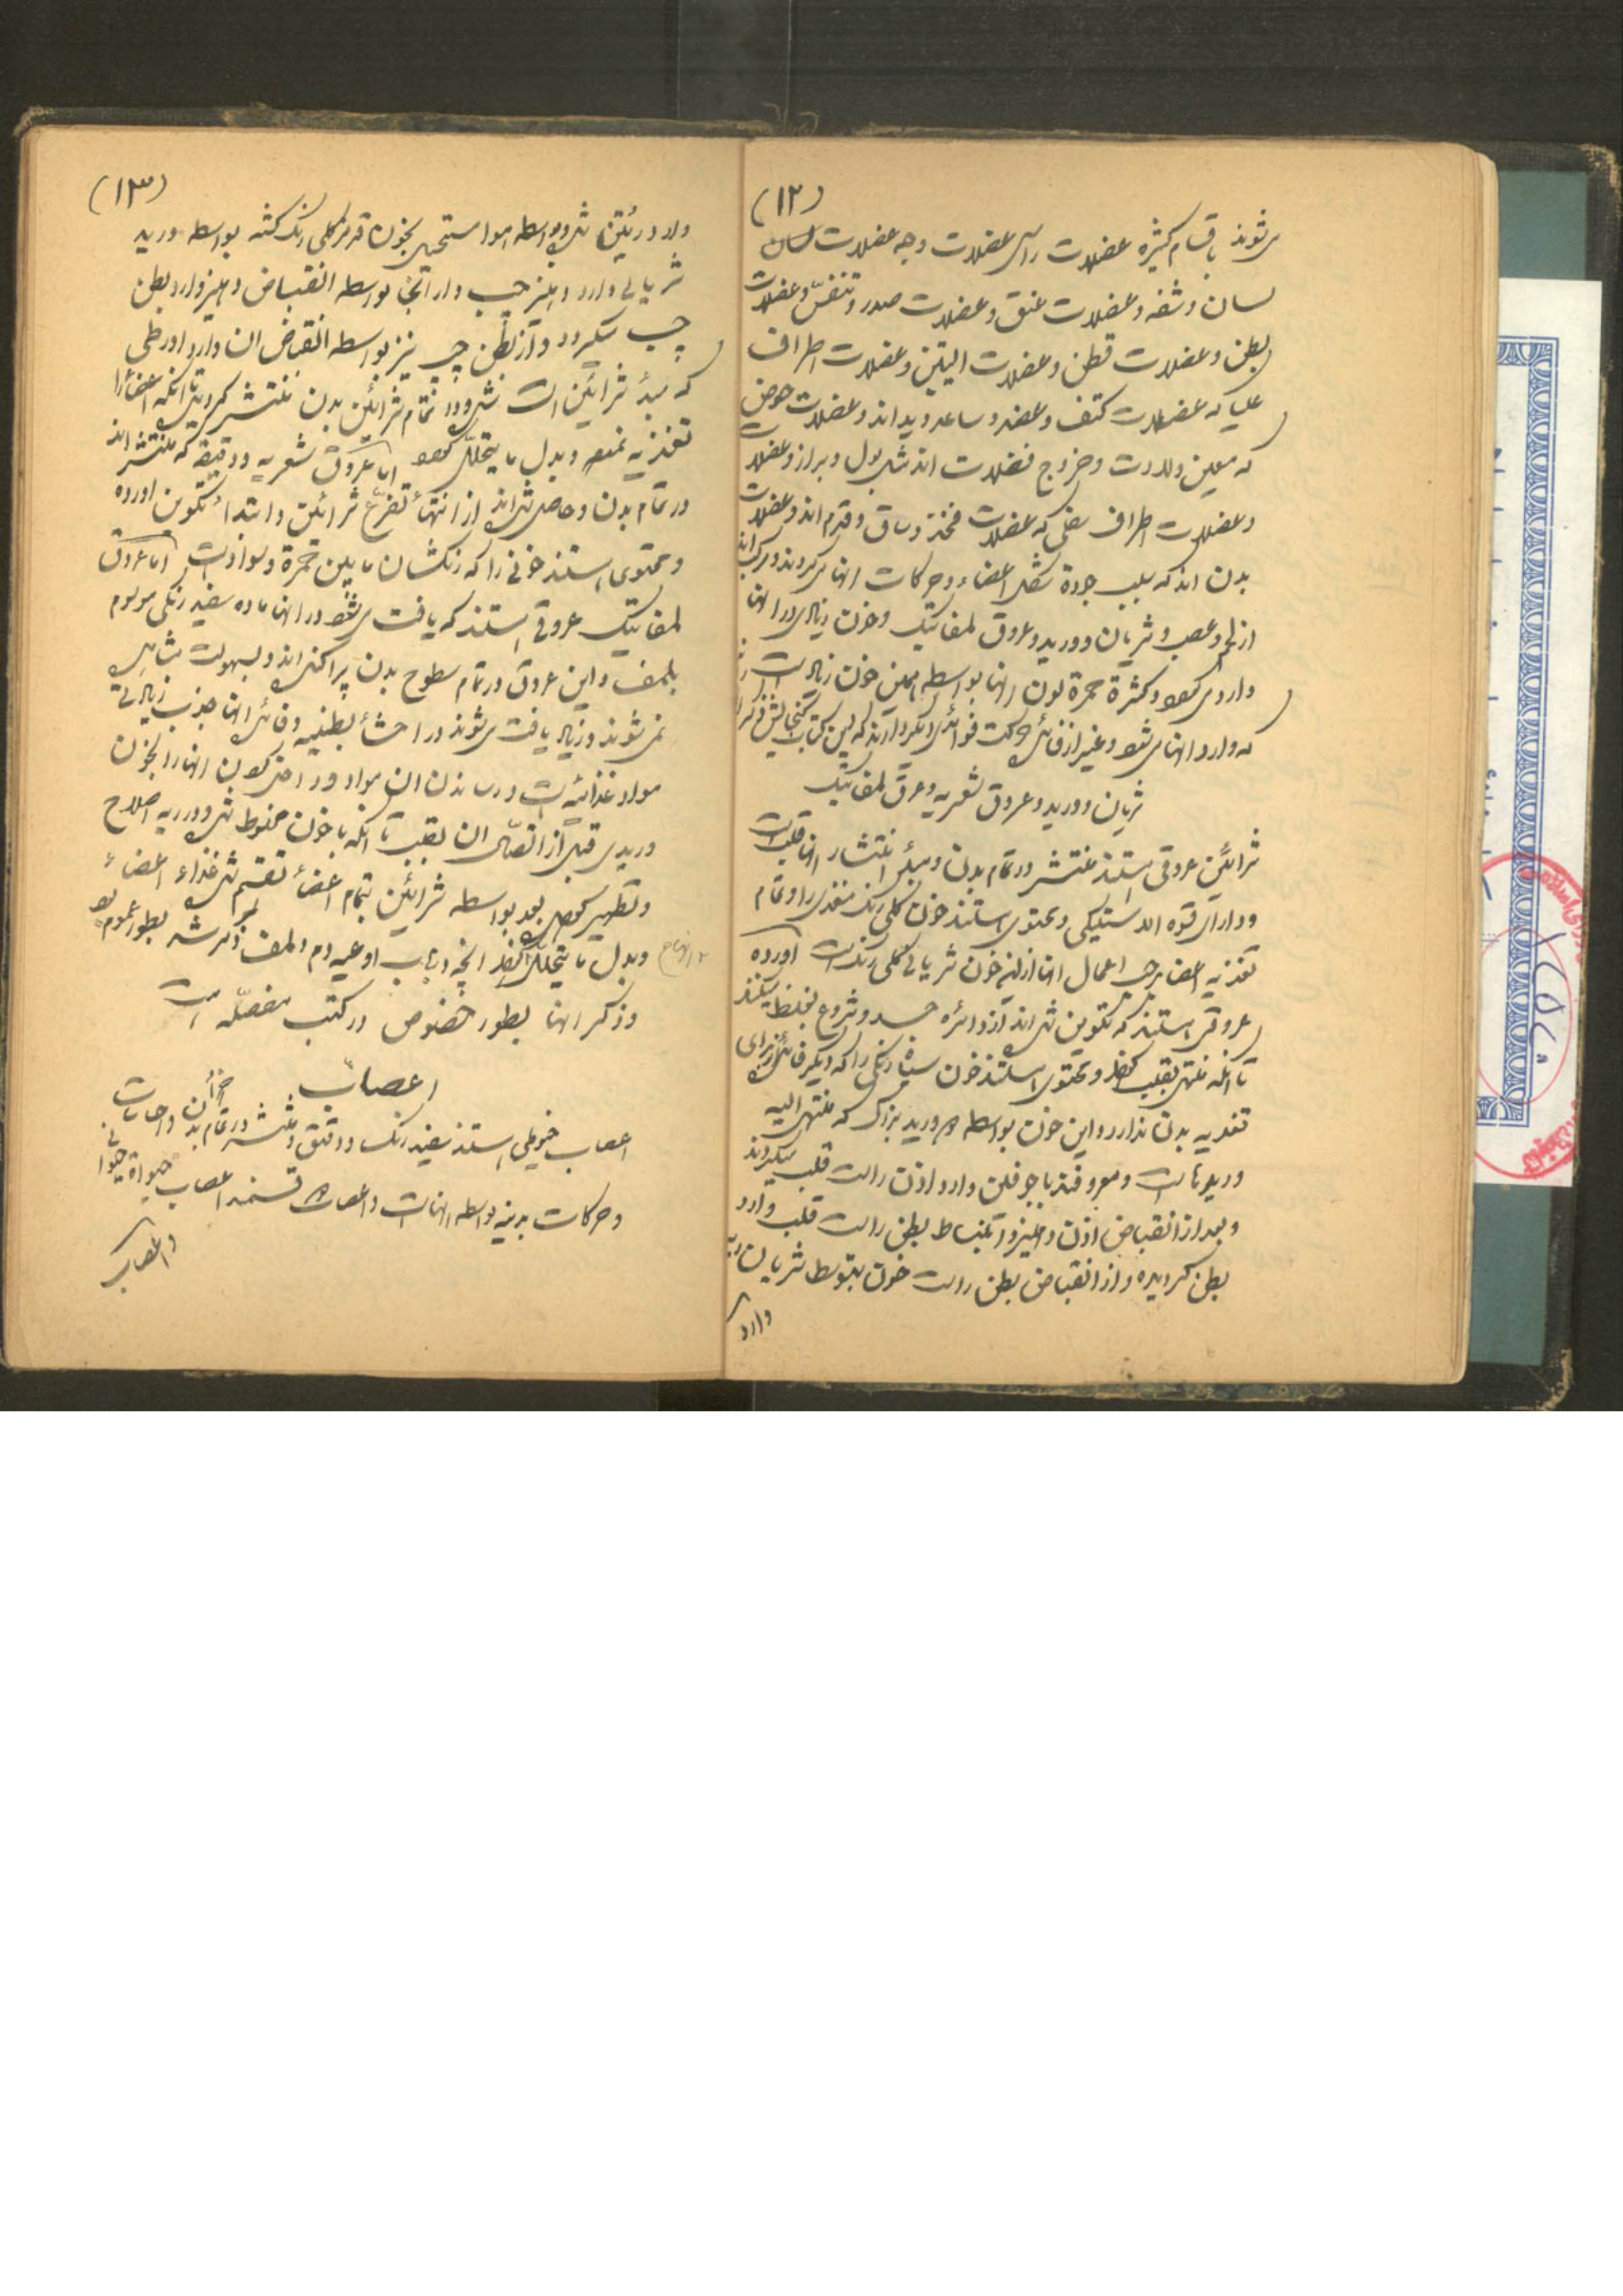 (۱۲)
می‌شوند باقسام کثیره عضلات راس عضلات وجه عضلات لسان
لسان و شفه و عضلات عنق و عضلات صدر و تنفس و عضلات
بطن و عضلات قطن و عضلات الیتین و عضلات اطراف
علیا که عضلات کتف و عضد و ساعد و ید اند و عضلات حوض
که معین ولادت و خروج فضلات اند مثل بول و براز و عضلات
و عضلات اطراف سفلی که عضلات فخذ و ساق و قدم اند و عضلات
بدن اند که سبب جودة شکل اعضاء و حرکات آنها میگردند و مرکب اند
از لحم و عصب و شریان و ورید و عروق لمفاتیک و خون زیادی در آنها
وارد می‌شود و کثرة حمرة لون آنها بواسطه همین خون زیاد است
که وارد آنها می‌شود و غیر از فائده حرکت فوائد دیگر دارند که این کتاب گنجایش ذکر
شریان و ورید و عروق شعریه و عرق لمفاتیک
شرائین عروقی هستند منتشر در تمام بدن و مبدأ انتشار آنها قلب است
و دارای قوه الاستیکی و محتوی هستند خون گلی رنگ مغذی را و تمام
تغذیه اعضا بر حسب اعمال آنها از این خون شریانی گلی رنگ است اورده
عروقی هستند که تکوین شده اند از دائره جسد و شروع بغلظ میکنند
تا آنکه منتهی بقلب شود و محتوی هستند خون سیاه رنگی را که دیگر فائده برای
تغذیه بدن ندارد و این خون بواسطه دو ورید بزرگ که منتهی الیه
وریدهاست و معروفند باجوفین وارد اذن راست قلب میگردند
و بعد از انقباض اذن دهلیز و انبساط بطن راست قلب وارد
بطن گردیده و از انقباض بطن راست خون بتوسط شریان ریه
وارد
(۱۳)
وارد ریتین شده و بواسطه هوا مستحیل بخون قرمز گلی رنگ گشته بواسطه ورید
شریانی وارد دهلیز چپ و از آنجا بواسطه انقباض دهلیز وارد بطن
چپ میگردد و از بطن چپ نیز بواسطه انقباض آن وارد اورطی
که مبدأ شرائین است شده و در تمام شرائین بدن منتشر گردیده تا آنکه اعضا را
تغذیه نمود و بدل ما یتحلل گردد اما عروق شعریه و دقیقه که منتشر اند
در تمام بدن و حاصل شده اند از انتهاء تفرع شرائین و ابتداء تکوین اورده
و محتوی هستند خونی را که رنگشان ما بین حمرة و سواد است اما عروق
لمفاتیک عروقی هستند که یافت می‌شود در آنها ماده سفید رنگی موسوم
بلمف و این عروق در تمام سطوح بدن پراکنده اند و بسهولت مشاهده
نمی‌شوند و زیاد یافت می‌شوند در احشاء بطنیه و فائده آنها جذب زیادتی
مواد غذائیه است و رساندن آن مواد در آنها را بخون
وریدی قبل از اتصال آن بقلب تا آنکه با خون مخلوط شده و در ریه اصلاح
و تطهیر گردیده بعد بواسطه شرائین بتمام اعضاء تقسیم شده غذاء اعضاء
و بدل ما یتحلل گردد آنچه در باب اوعیه دم و لمف ذکر شد بطور عموم بود
و ذکر آنها بطور خصوص در کتب مفصله است
اعصاب
اعصاب خیوطی هستند سفید رنگ و دقیق و منتشر در تمام اجزاء بدن و احساسات
و حرکات بدنیه بواسطه آنهاست و اعصاب دو قسمند اعصاب حیوة حیوانی
و اعصاب